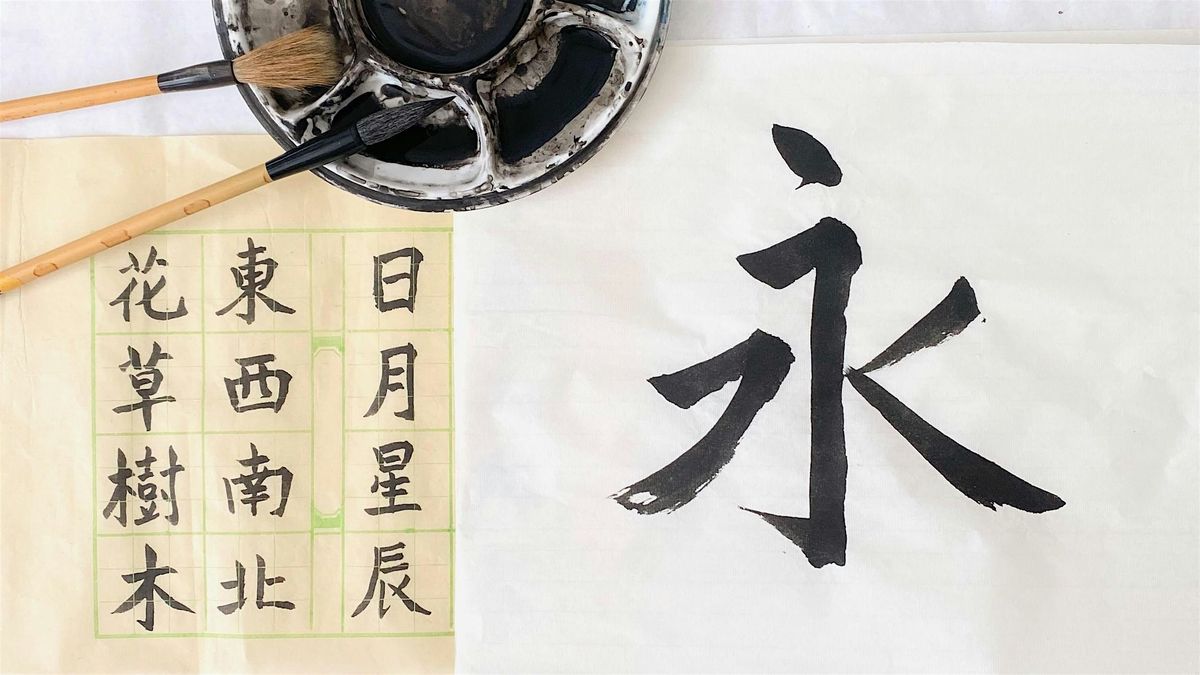 日月星辰
東西南北
花草樹木
永